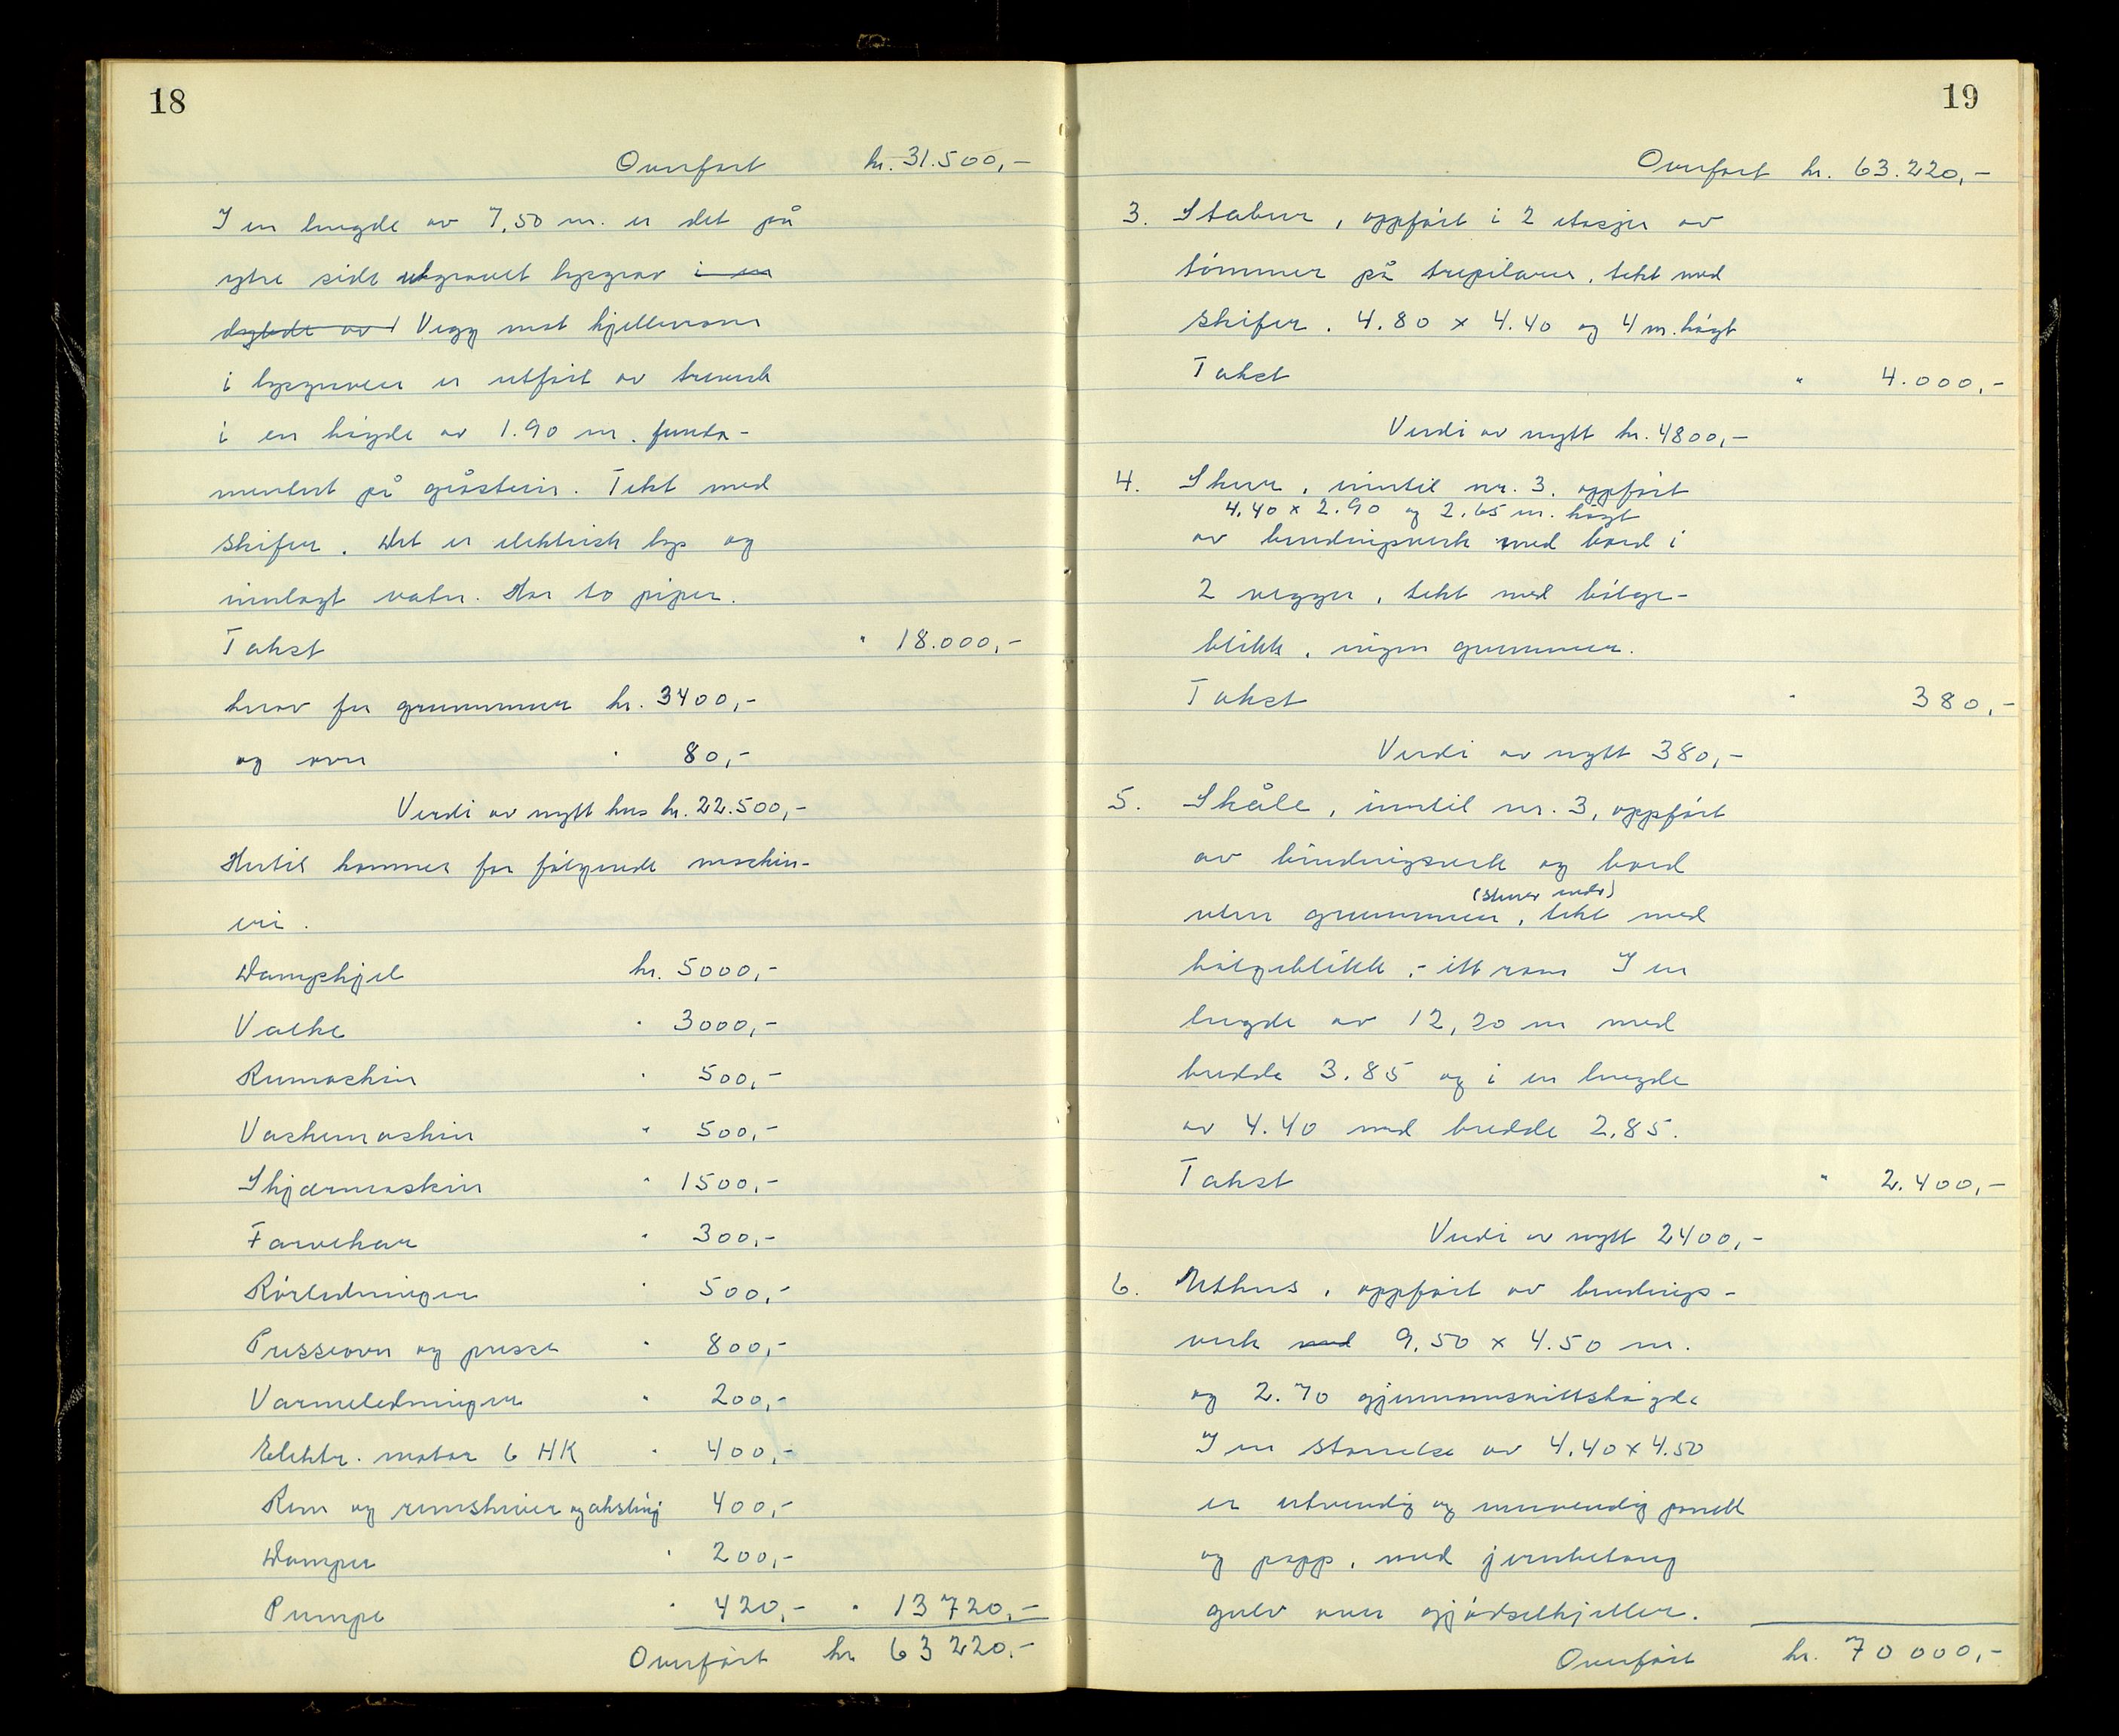 18
Overført kr. 31.500,-
I en lengde av 7,50 m. er det på
ytre side utgravet lysgrav i en
dybde av Vegg mot kjellerrom
i lysgraven er utført av treverk
i en høyde av 1.90 m. funda-
mentert på gråstein. Tekt med
skifer. Det er elektrisk lys og
innlagt vatn. Har to piper.
Takst " 18.000,-
herav for grunnmur kr. 3400,-
og ovn " 80,-
Verdi av nytt hus kr. 22.500,-
Hertil kommer for følgende maskin-
eri.
Dampkjel kr. 5000,-
Valke " 3000,-
Rumaskin " 500,-
Vaskemaskin " 500,-
Skjærmaskin " 1500,-
Farvekar " 300,-
Rørledninger " 500,-
Presseovn og presse " 800,-
Varmeledninger " 200,-
Elektr. motor 6 HK " 400,-
Rem og remskiver og aksling 400,-
Damper " 200,-
Pumpe " 420,- " 13720,-
Overført kr 63220,-
19
Overført kr. 63.220,-
3. Stabur, oppført i 2 etasjer av
tømmer på trepilarer, tekt med
skifer. 4.80 x 4.40 og 4 m. høgt
Takst " 4.000,-
Verdi av nytt kr. 4800,-
4. Skur, inntil nr. 3. oppført
4.40 x 2.90 og 2.65 m. høgt
av bindingsverk med bord i
2 vegger, tekt med bølge-
blikk, ingen grunnmur.
Takst " 380,-
Verdi av nytt 380,-
5. Skåle, inntil nr. 3, oppført
av bindingsverk og bord
(skiver under)
uten grunnmur, tekt med
bølgeblikk,- ett rom I en
lengde av 12,20 m med
bredde 3.85 og i en lengde
av 4.40 med bredde 2.85.
Takst " 2.400,-
Verdi av nytt 2400,-
6. Uthus, oppført av bindings-
verk med 9.50 x 4.50 m.
og 2.70 gjennomsnittshøgde
I en størrelse av 4.40 x 4.50
er utvendig og innvendig panelt
og papp, med jernbetong
gulv over gjødselkjeller.
Overført kr. 70000,-